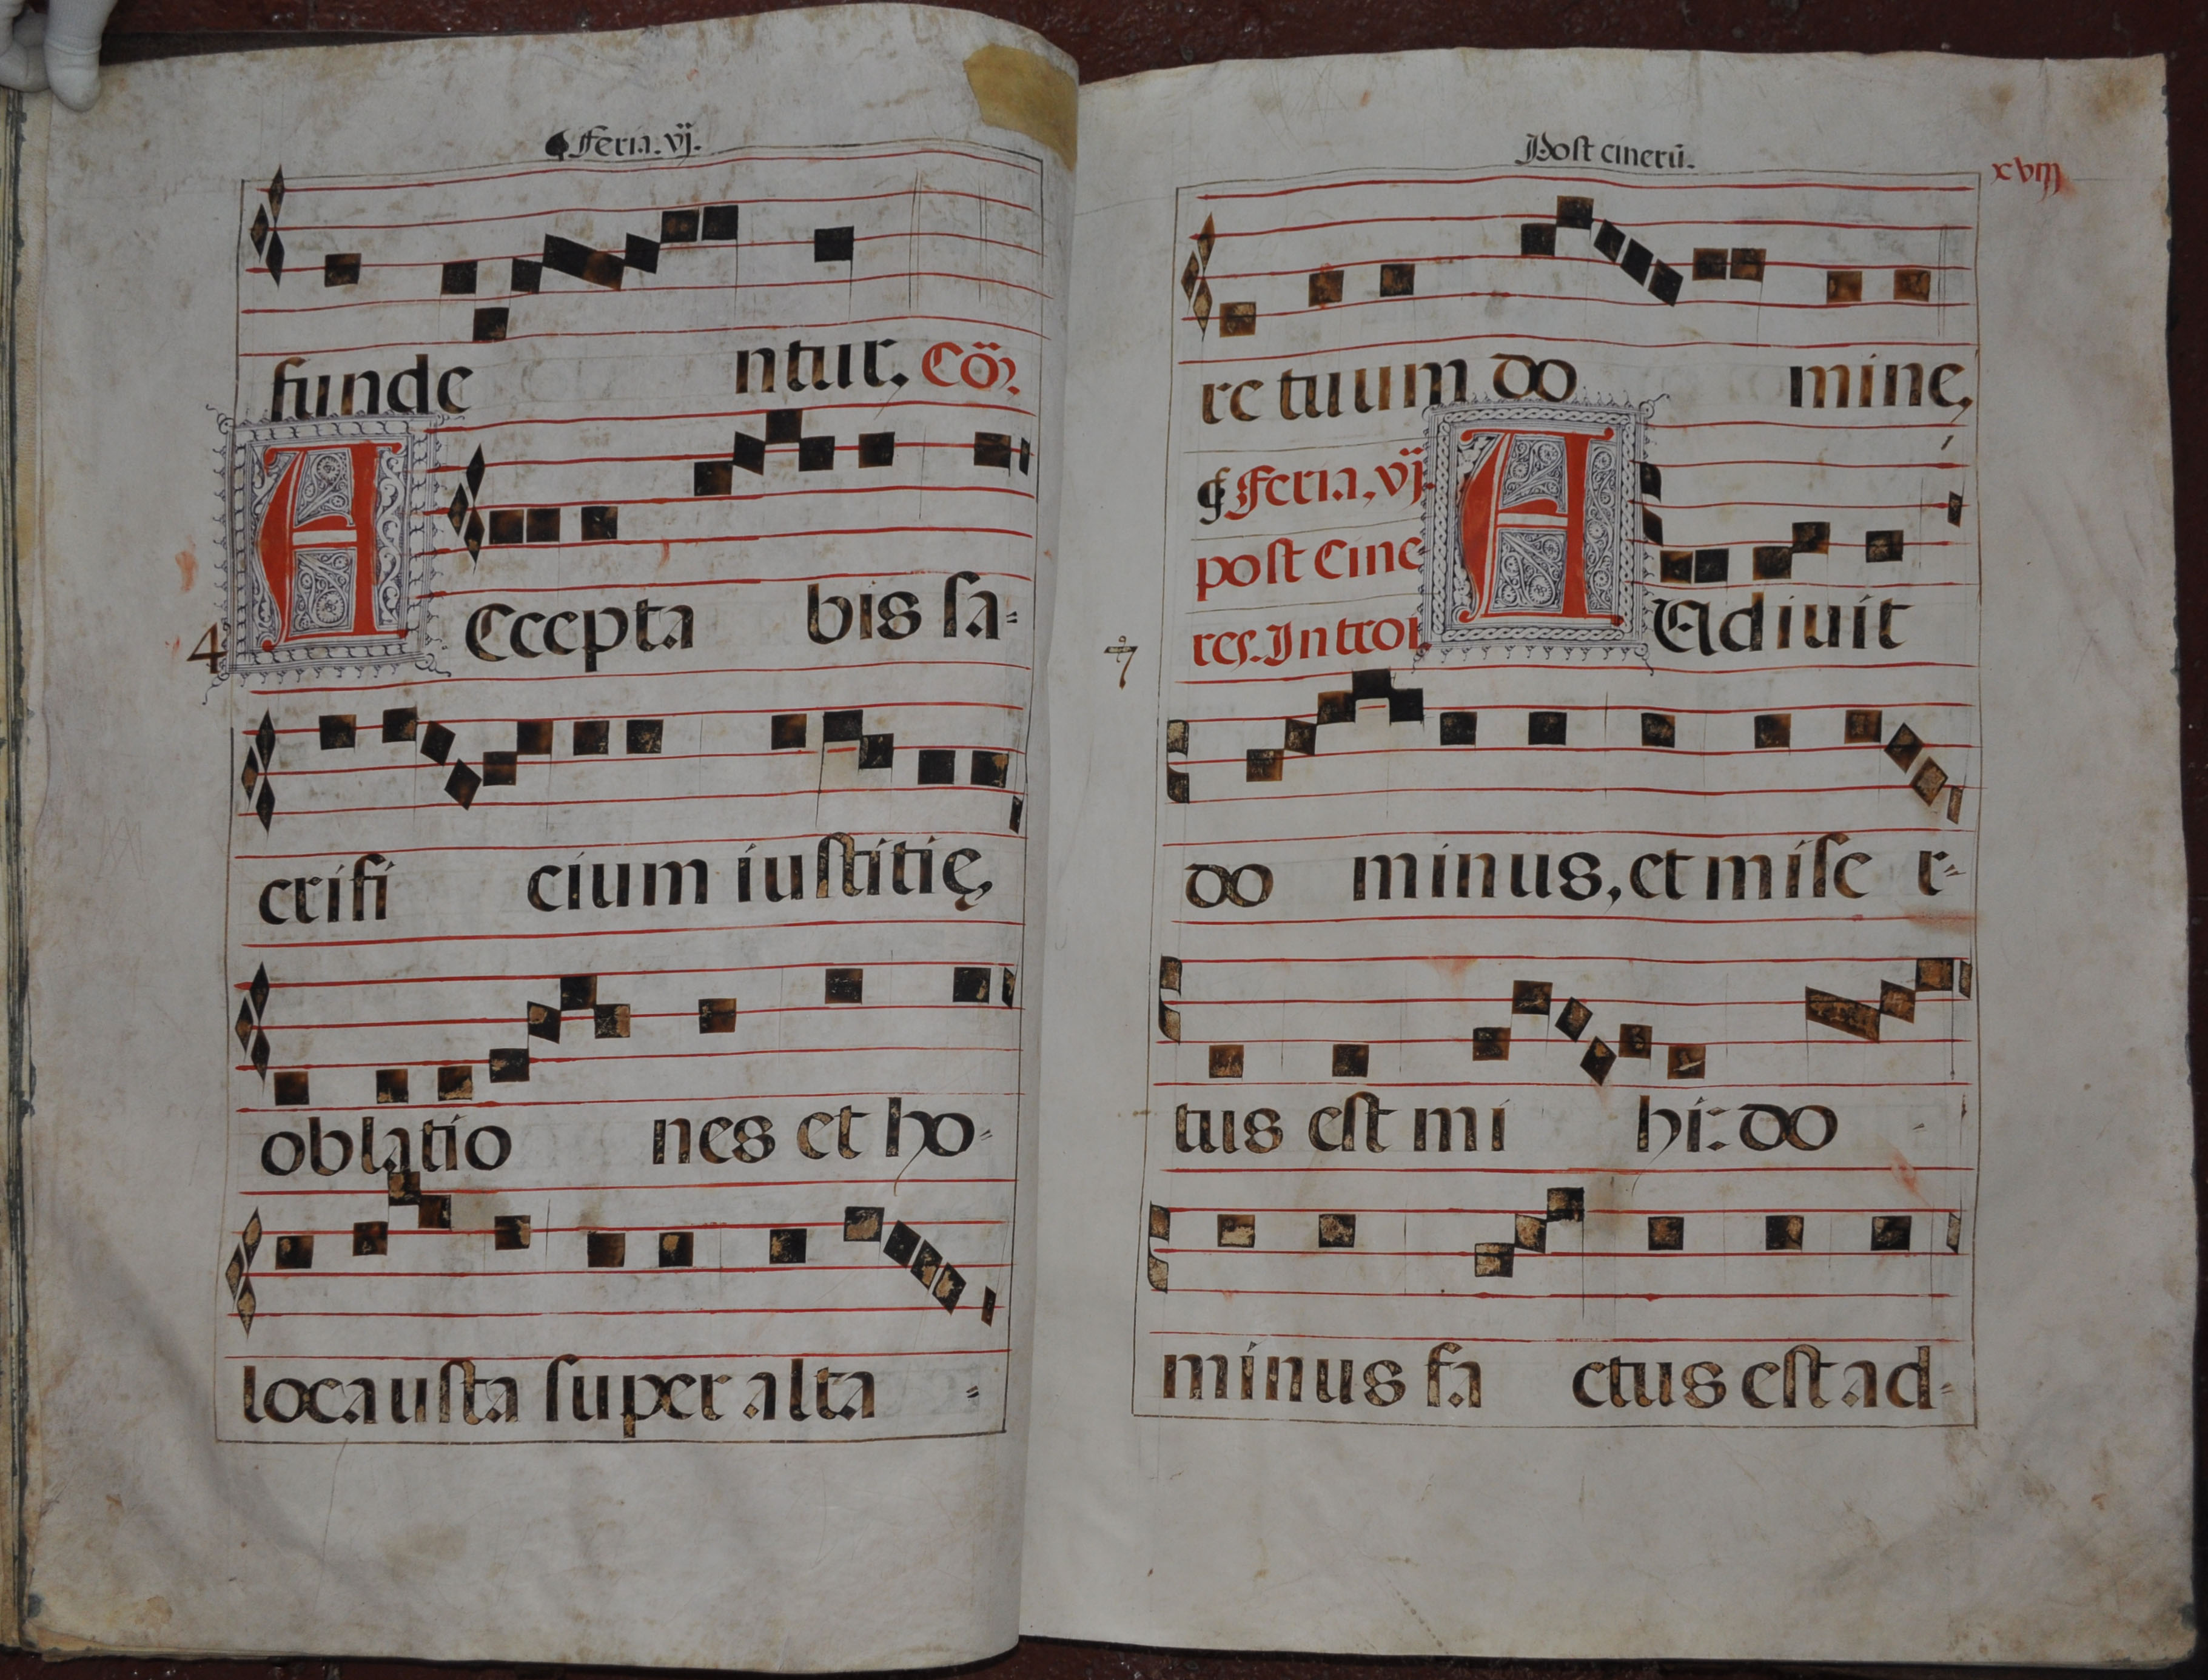 Feria. vj.
funde ntur. Cõ.
A
Ccepta bis sa=
4
crifi cium iustitię,
oblatio nes et ho=
locausta super alta =
Post cinerũ.
xviij
re tuum do mine,
Feria, vj.
post Cine
res. Introi
A
Udiuit
7
do minus, et mise r=
tus est mi hi: do -
minus fa ctus est ad=